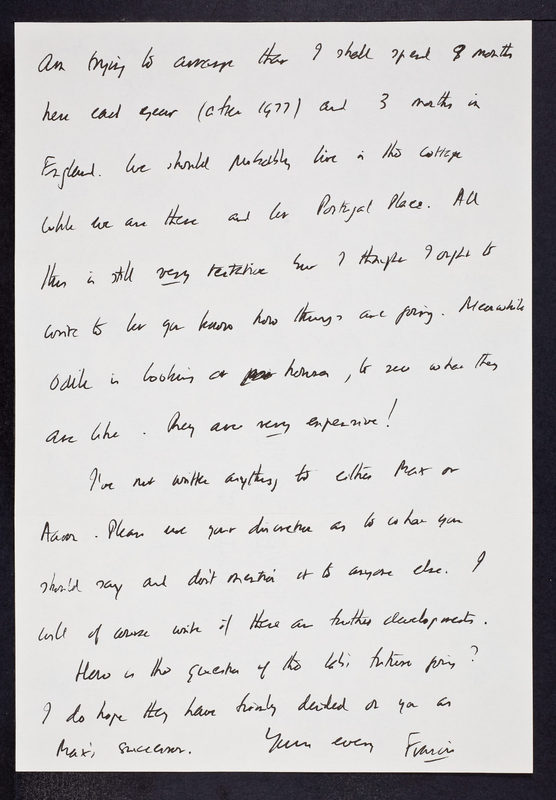 are trying to arrange that I shall spend 9 months
here each year (after 1977) and 3 months in
England. We should probably live in the cottage
while we are there and let Portugal Place. All
this is still very tentative but I thought I ought to
write to let you know how things are going. Meanwhile
Odile is looking at houses, to see what they
are like. They are very expensive!
I've not written anything to either Max or
Aaron. Please use your discretion as to what you
should say and don't mention it to anyone else. I
will of course write if there are further developments.
How is the question of the lab's future going?
I do hope they have firmly decided on you as
Max's successor. Yours ever, Francis